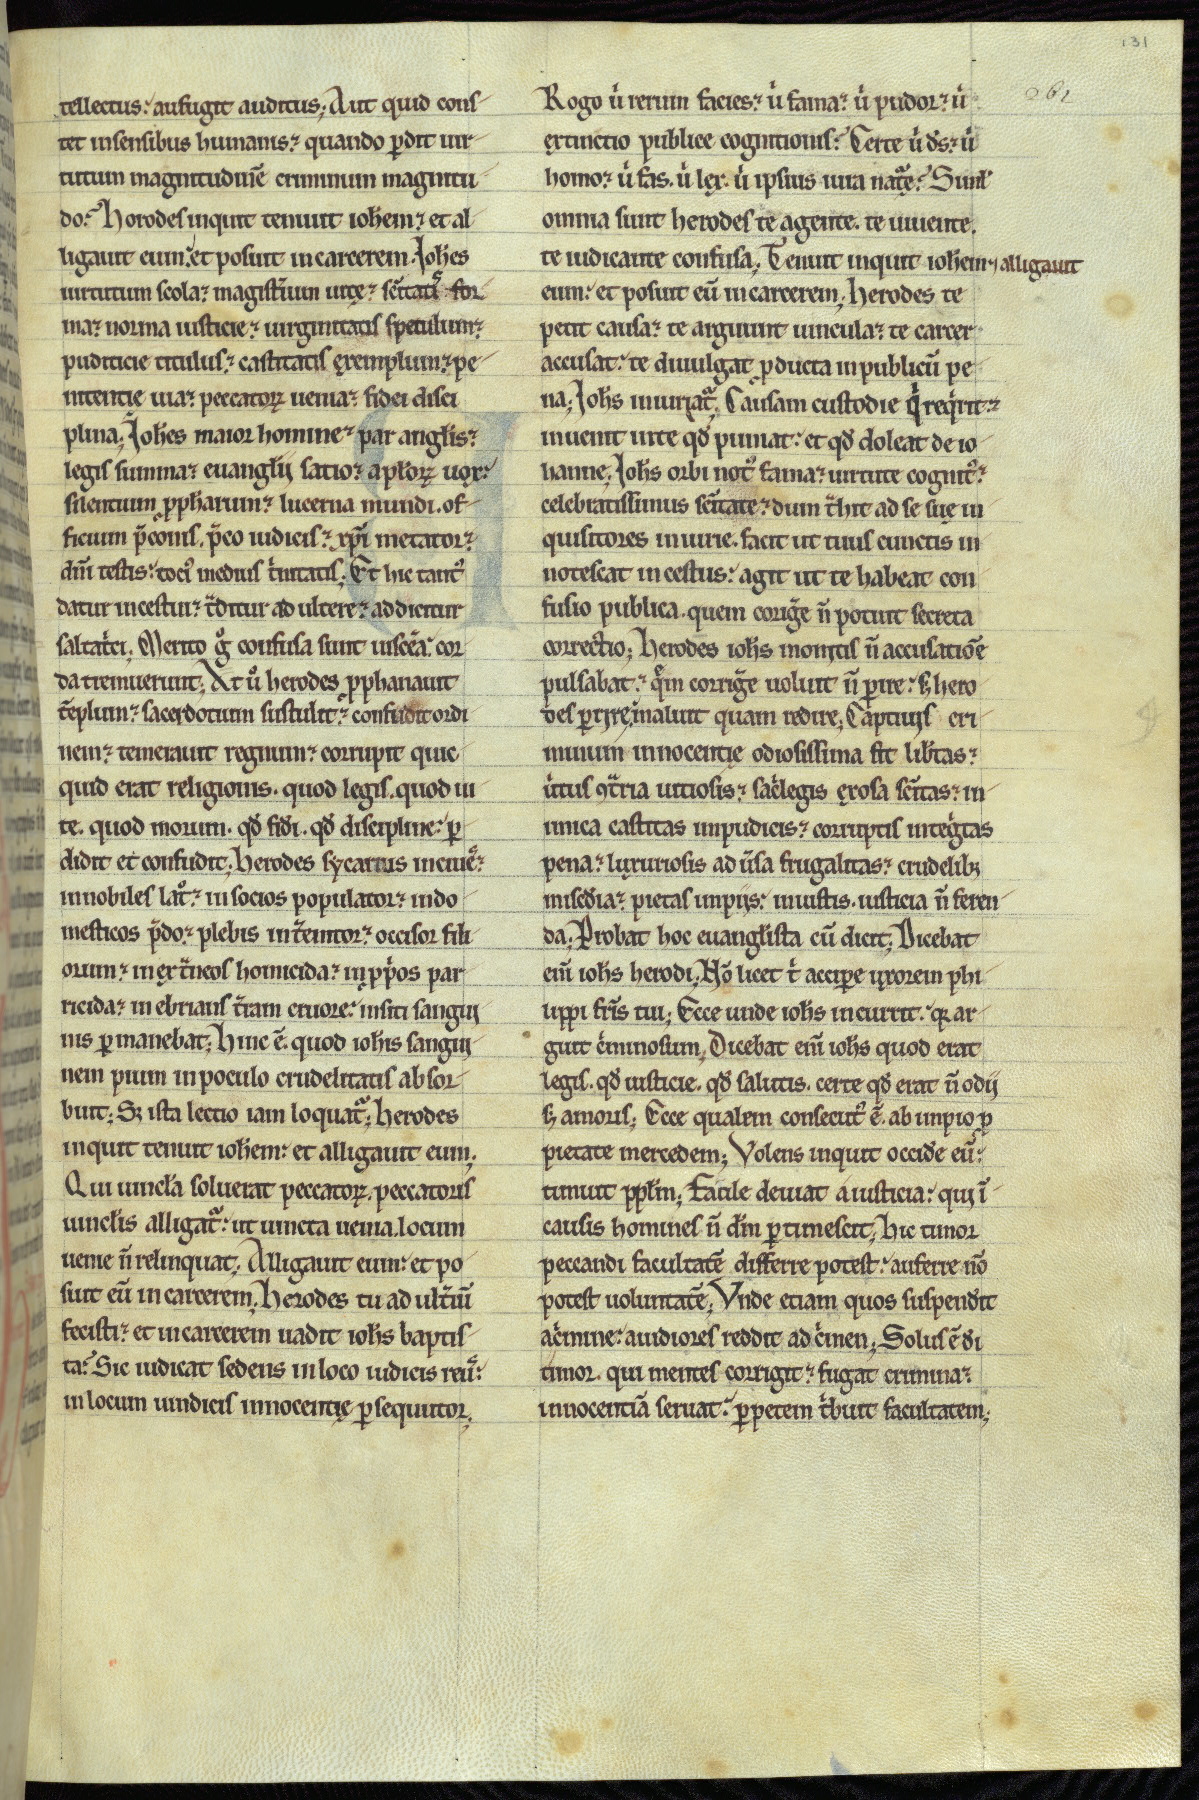 131
tellectus: aufugit auditus; Aut quid cons
tet insensibus humanis? quando ꝑdit uir
tutum magnitudinē criminum magnitu
do? Horodes inquit tenuit ioh̄em? et al
ligauit eum: et posuit in carcerem. Joh̄es
uirtutum scola? magist̄ium uitę? sc̄itatis for
ma? norma iusticie? uirginitatis speculum?
puditicie titulus? castitatis exemplum? pe
nitentie uia? peccatoꝝ uenia? fidei disci
plina; Joh̄es maior homine? par angl̄is?
legis summa? euangl̄ij satio? apl̄oꝝ uox?
silentium ꝓph̄arum? lucerna mundi. of
ficium p̄conis. p̄co iudicis? xp̄i metator?
dn̄i testis: tocꝰ medius t̄nitatis; Et hic tantꝰ
datur incestui? t̄ditur adultere? addicitur
saltat̄ci; Merito gͦ confusa sunt uiscēa: cor
da tremuerunt; At uͦ herodes ꝓphanauit
tēplum? sacerdotium sustulit? confudit ordi
nem? temerauit regnum? corrupit quic
quid erat religionis. quod legis. quod ui
te. quod morum. qd̄ fidi. qd̄ discipline: ꝑ
didit et confudit; Herodes sycarius inciuēs?
in nobiles lat̄o? in socios populator? in do
mesticos p̄do? plebis int̄emtor? occisor fili
orum? in ext̄neos homicida? in ꝓpos par
ricida? in ebrians t̄ram cruore: insiti sangui
nis ꝑmanebat; Hinc ē. quod ioh̄is sangui
nem pium in poculo crudelitatis absor
buit; Sꝫ ista lectio iam loquat̄; Herodes
inquit tenuit ioh̄em: et alligauit eum;
Qui uincl̄a soluerat peccatoꝝ. peccatoris
uincl̄is alligat̄: ut uincta uenia. locum
uenie n̄ relinquat; Alligauit eum: et po
suit eū in carcerem; Herodes tu adult̄iū
fecisti? et in carcerem uadit ioh̄s baptis
ta? Sic iudicat sedens in loco iudicis reū:
in locum uindicis innocentię ꝑsequutor;
Rogo ūi rerum facies? ūi fama? ūi pudor? ūi
extinctio publice cognitionis? Certe ūi ds̄? ūi
homo? ūi fas. ūi lex. ūi ipsius iura natꝛe? Siml̄
omnia sunt herodes te agente. te uiuente.
te iudicante confusa; Tenuit inquit ioh̄em? alligauit
eum: et posuit eū in carcerem; Herodes te
petit causa? te arguunt uincula? te carcer
accusat: te diuulgat ꝓducta in publicū pe
na; Joh̄s iniuriat̄. Causam custodie q̄ req̄rit?
inuenit in te qd̄ puniat: et qd̄ doleat de io
hanne; Joh̄s orbi notꝰ fama? uirtute cognitꝰ?
celebratissimus sc̄itate? dum t̄hit ad se suę in
quisitores iniurie. facit ut tuus cunctis in
notescat incestus: agit ut te habeat con
fusio publica. quem coriḡe n̄ potuit secreta
correctio; Herodes ioh̄s monitis n̄ accusatiōe
pulsabat: q̄m corriḡe uoluit n̄ ꝑire: sꝫ hero
des ꝑire maluit quam redire; Captiuis cri
minum innocentię odiosissima fit lib̄tas?
ūtus ꝯt̄ria uitiosis? sac̄legis exosa sc̄itas? in
imica castitas impudicis? corruptis inteḡtas
pena? luxuriosis aduͥsa frugalitas? crudelibꝫ
misc̄dia? pietas impijs: iniustis. iusticia n̄ feren
da; Probat hoc euangl̄ista cū dicit; Dicebat
em̄ ioh̄s herodi; Nō licet t̄ accipe uxorem phi
lippi fr̄is tui; Ecce unde ioh̄s incurrit: qꝛ ar
guit c̄minosum; Dicebat em̄ ioh̄s quod erat
legis. qd̄ iusticie. qd̄ salutis. certe qd̄ erat n̄ odij
sꝫ amoris; Ecce qualem consecutꝰ ē. ab impio ꝓ
pietate mercedem; Volens inquit occid̄e eū:
timuit ppl̄m; Facile deuiat a iusticia: qui ī
causis homines n̄ dm̄ ꝑtimescit; Hic timor
peccandi facultatē differre potest: auferre nō
potest uoluntatē; Vnde etiam quos suspendit
a c̄imine: auidiores reddit ad c̄imen; Solus ē di
timor. qui mentes corrigit? fugat crimina?
innocentiā seruat: ꝑpetem t̄buit facultatem;